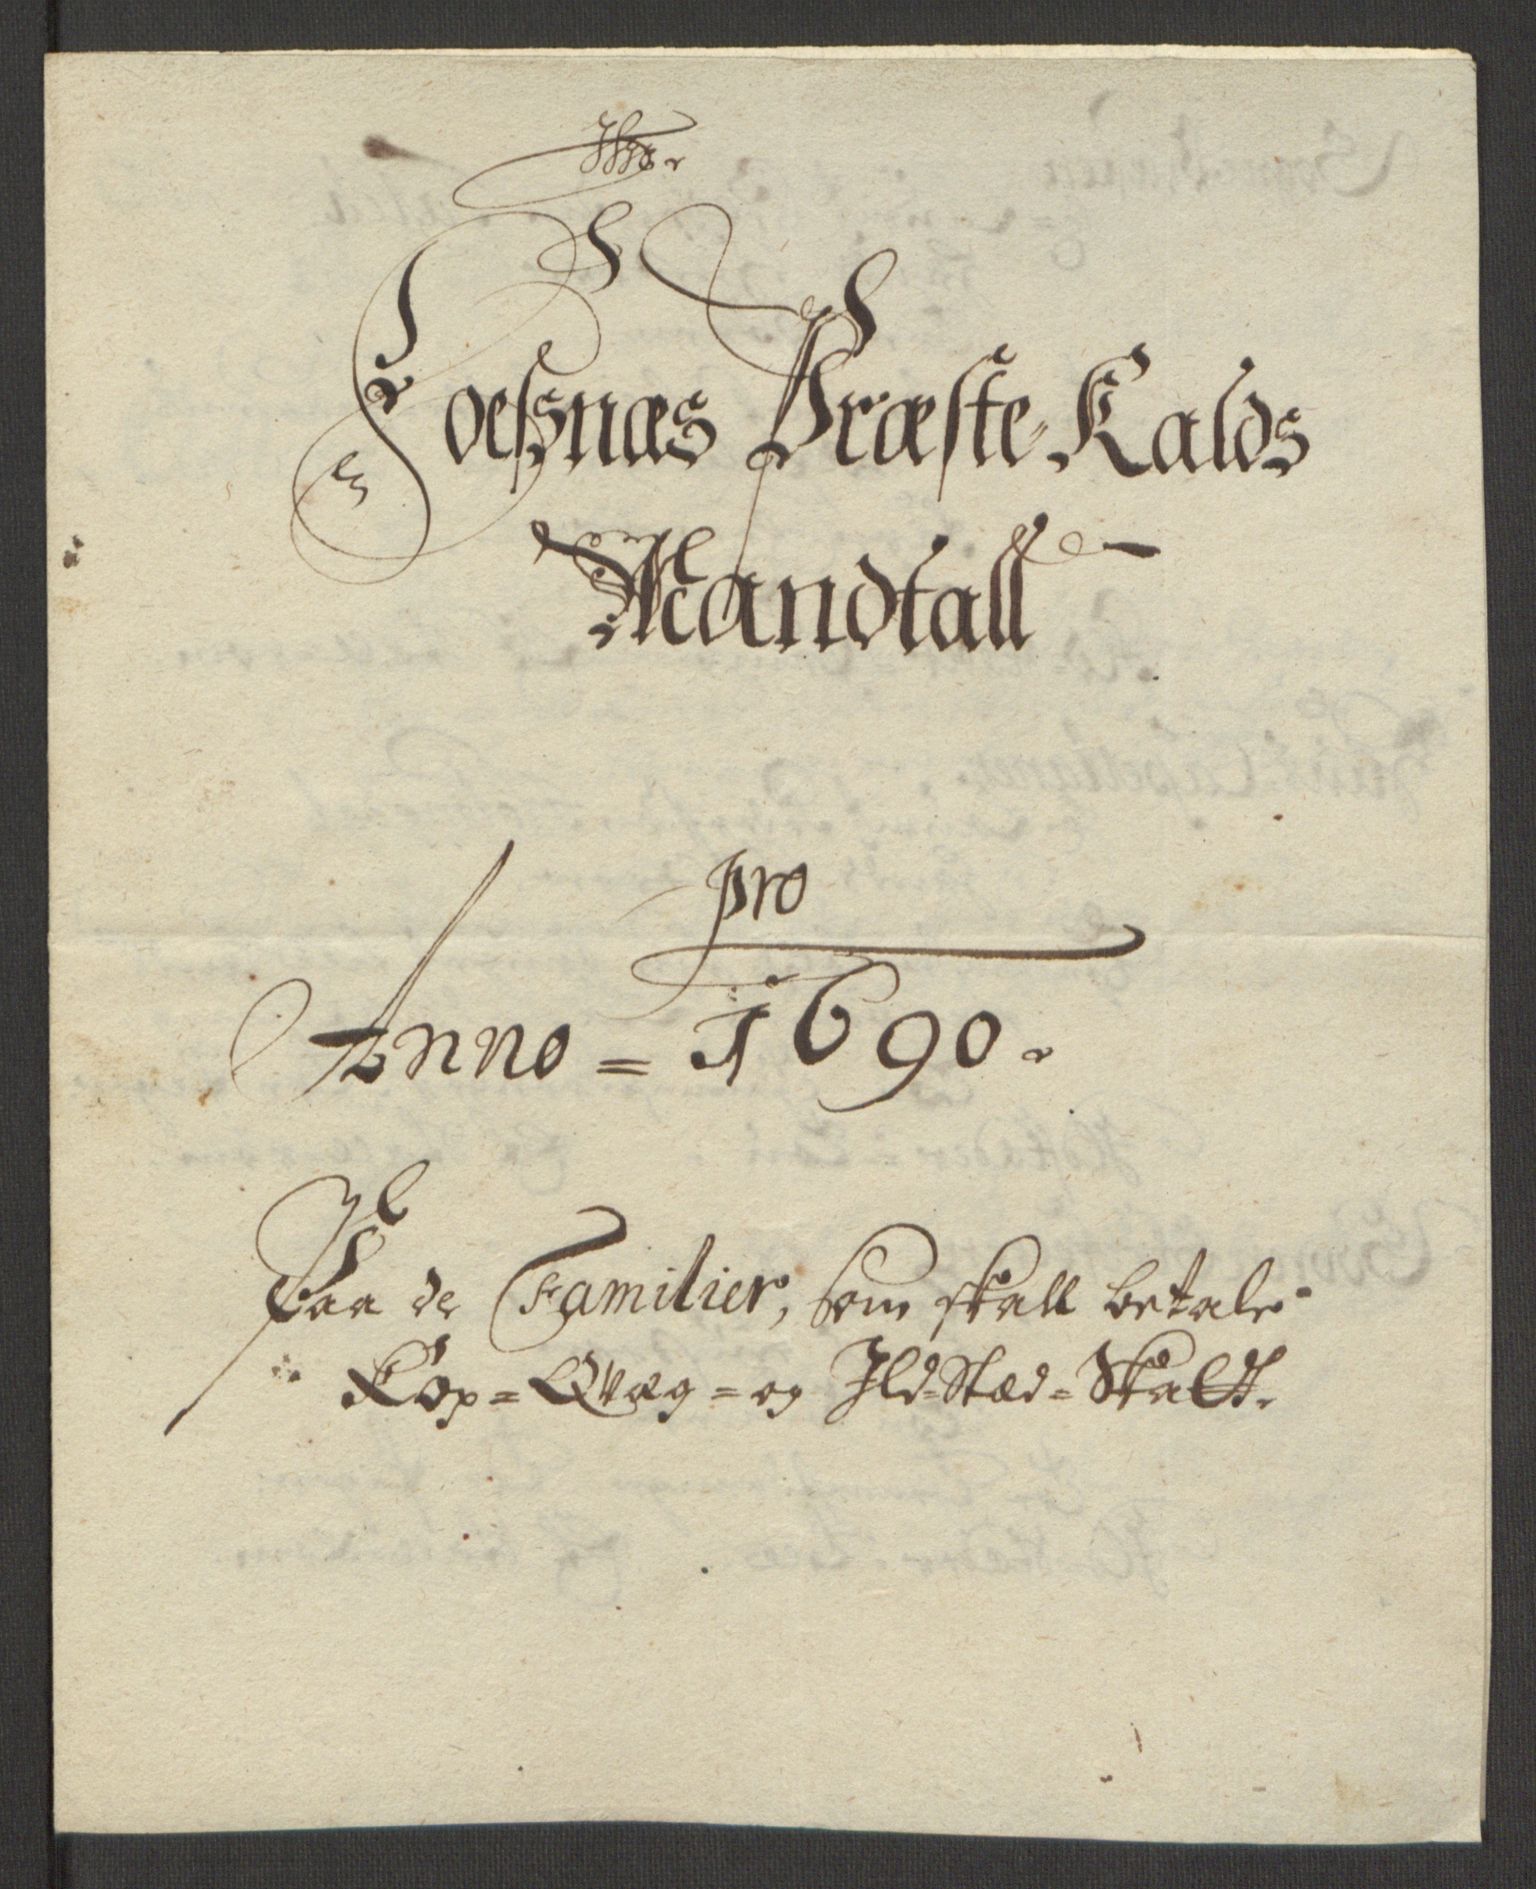 Foeßnæs Præste-Kalds
Mandtall
pro
Anno = 1690.
Paa de Familier, som skall betale
Kop = Qvæg = og Ild-Stæd = Skatt.